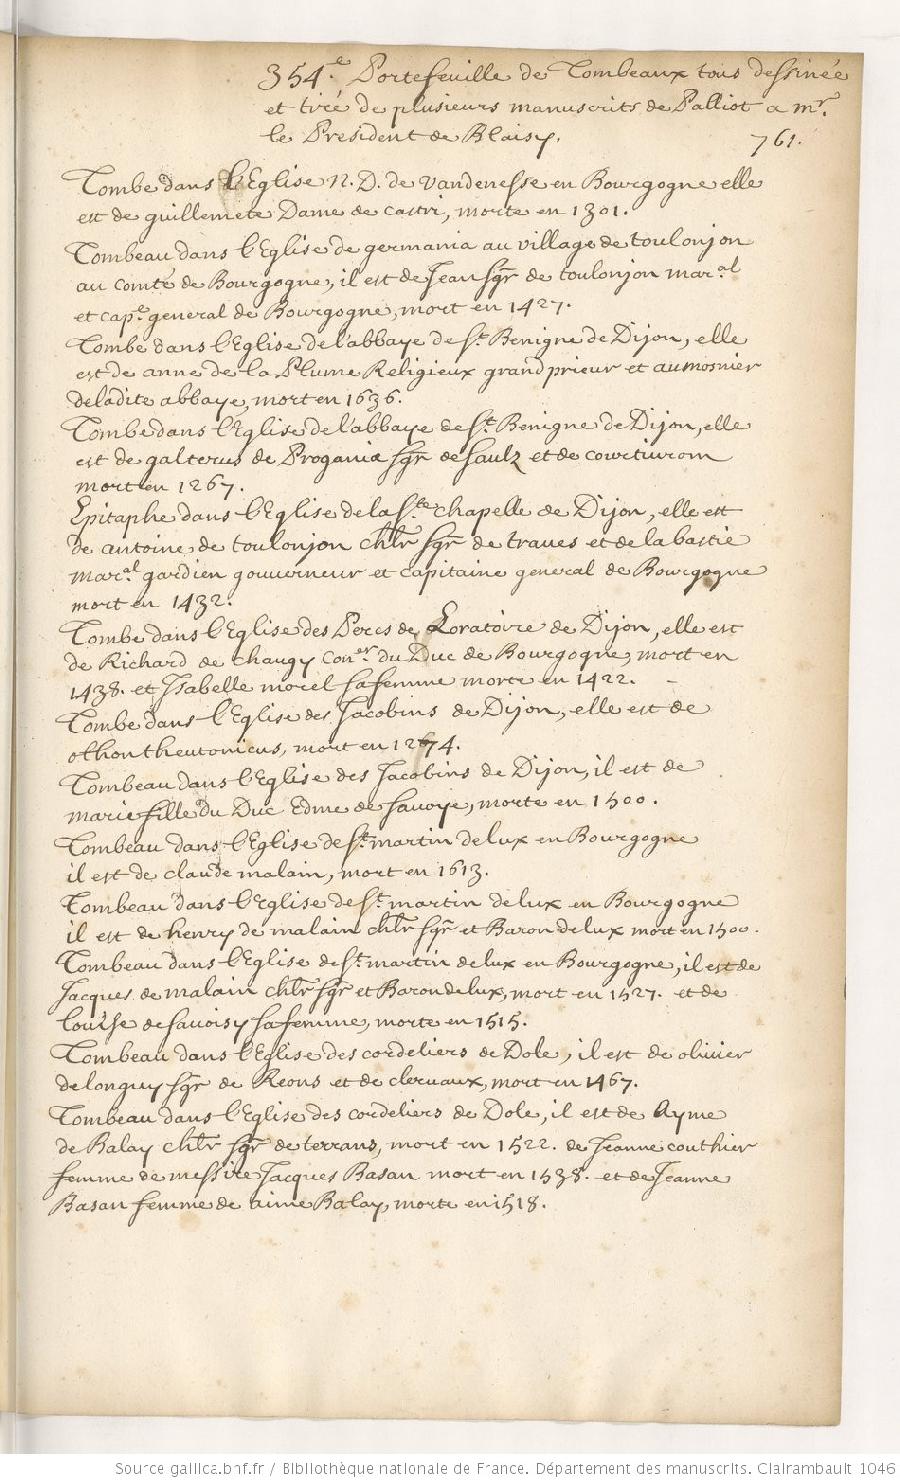 354.e Portefeuille de Tombeaux tous dessinée
et tiré de plusieurs manuscrits de Palliot a mr.
le President de Blaisy.
761.
Tombe dans l'Eglise N. D. de Vandenesse en Bourgogne elle
est de guillemete Dame de castri, morte en 1301.
Tombeau dans l'Eglise de germania au village de toulonjon
au comté de Bourgogne, il est de Jean sgr de toulonjon mar.al
et cap.e general de Bourgogne, mort en 1427.
Tombe dans l'Eglise de l'abbaye de St. Benigne de Dijon, elle
est de anne de la Plume Religieux grand prieur et aumosnier
de ladite abbaye, mort en 1636.
Tombe dans l'Eglise de l'abbaye de St. Benigne de Dijon, elle
est de galterus de Progania sgr de saulz et de courtiurom
mort en 1267.
Epitaphe dans l'Eglise de la Ste chapelle de Dijon, elle est
de antoine de toulonjon chlr sgr de traues et de la bastie
mar.al gardien gouuerneur et capitaine general de Bourgogne
mort en 1432.
Tombe dans l'Eglise des Peres de Loratoire de Dijon, elle est
de Richard de chaugy con.er du Duc de Bourgogne, mort en
1438. et Isabelle morel sa femme morte en 1422.
Tombe dans l'Eglise des Jacobins de Dijon, elle est de
othon theutonicus, mort en 1274.
Tombeau dans l'Eglise des Jacobins de Dijon, il est de
marie fille du Duc Edme de sauoye, morte en 1500.
Tombeau dans l'Eglise de St. martin de lux en Bourgogne
il est de claude malain, mort en 1613.
Tombeau dans l'Eglise de St. martin de lux en Bourgogne
il est de henry de malain chlr sgr et Baron de lux mort en 1500.
Tombeau dans l'Eglise de St. martin de lux en Bourgogne, il est de
Jacques de malain chlr sgr et Baron de lux, mort en 1527. et de
louise de sauoisy sa femme, morte en 1515.
Tombeau dans l'Eglise des cordeliers de Dole, il est de oliuier
de longuy sgr de Reons et de cleruaux, mort en 1467.
Tombeau dans l'Eglise des cordeliers de Dole, il est de Ayme
de Balay chlr sgr de terrans, mort en 1522. de Jeanne couthier
femme de messire Jacques Basan mort en 1538. et de Jeanne
Basan femme de aime Balay, morte en 1518.
Source gallica.bnf.fr / Bibliothèque nationale de France. Département des manuscrits. Clairambault 1046